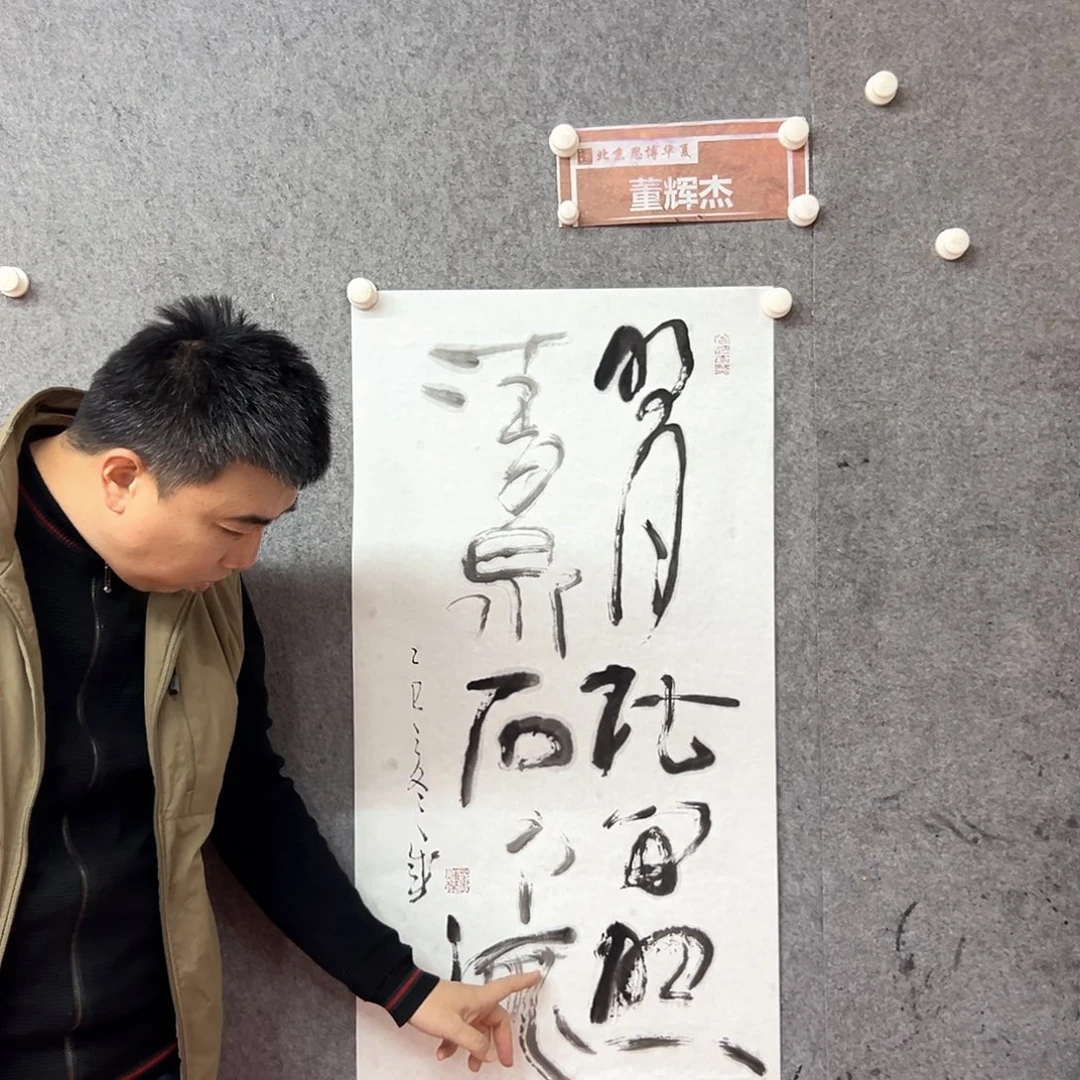 北京思博华夏
董辉杰
明月松间照
清泉石上流
乙巳之冬